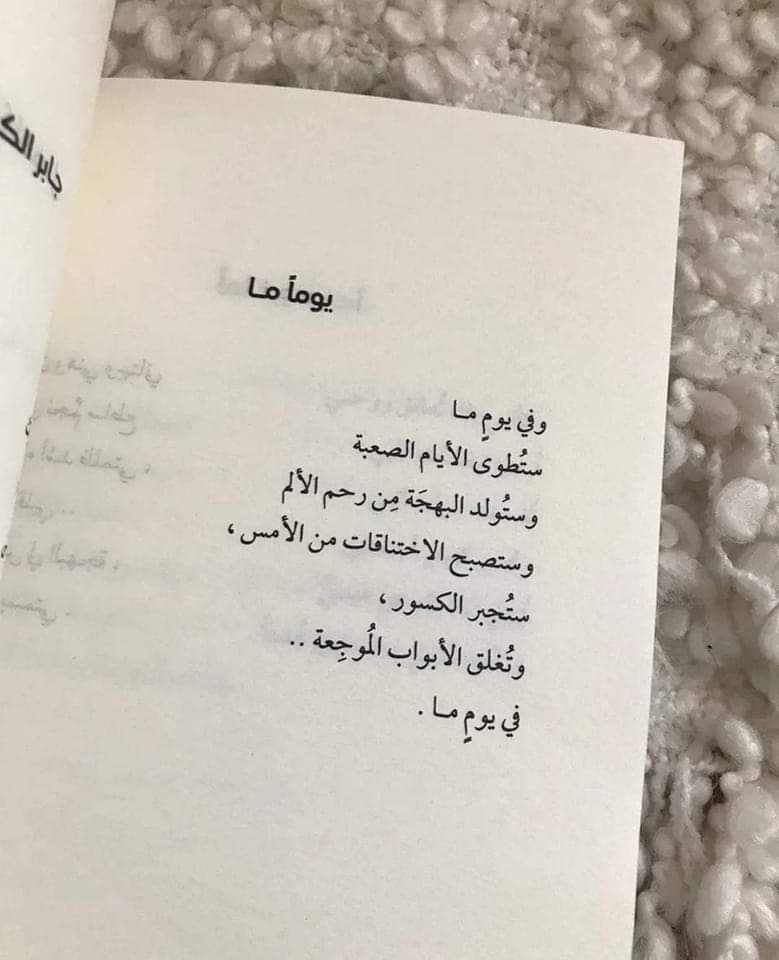 جابر
يوماً ما
وفي يومٍ ما
ستُطوى الأيام الصعبة
وستُولد البهجَة مِن رحم الألم
وستصبح الاختناقات من الأمس ،
ستُجبر الكسور ،
وتُغلق الأبواب المُوجِعة ..
في يومٍ ما .